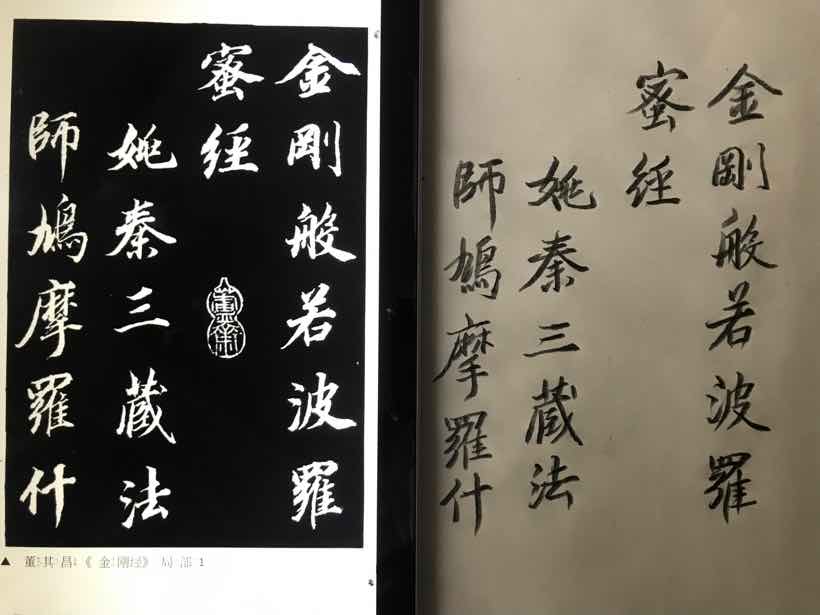 金剛般若波羅
蜜經
姚秦三藏法
師鳩摩羅什
▲ 董其昌《金刚经》局部 1
金剛般若波羅
蜜經
姚秦三藏法
師鳩摩羅什